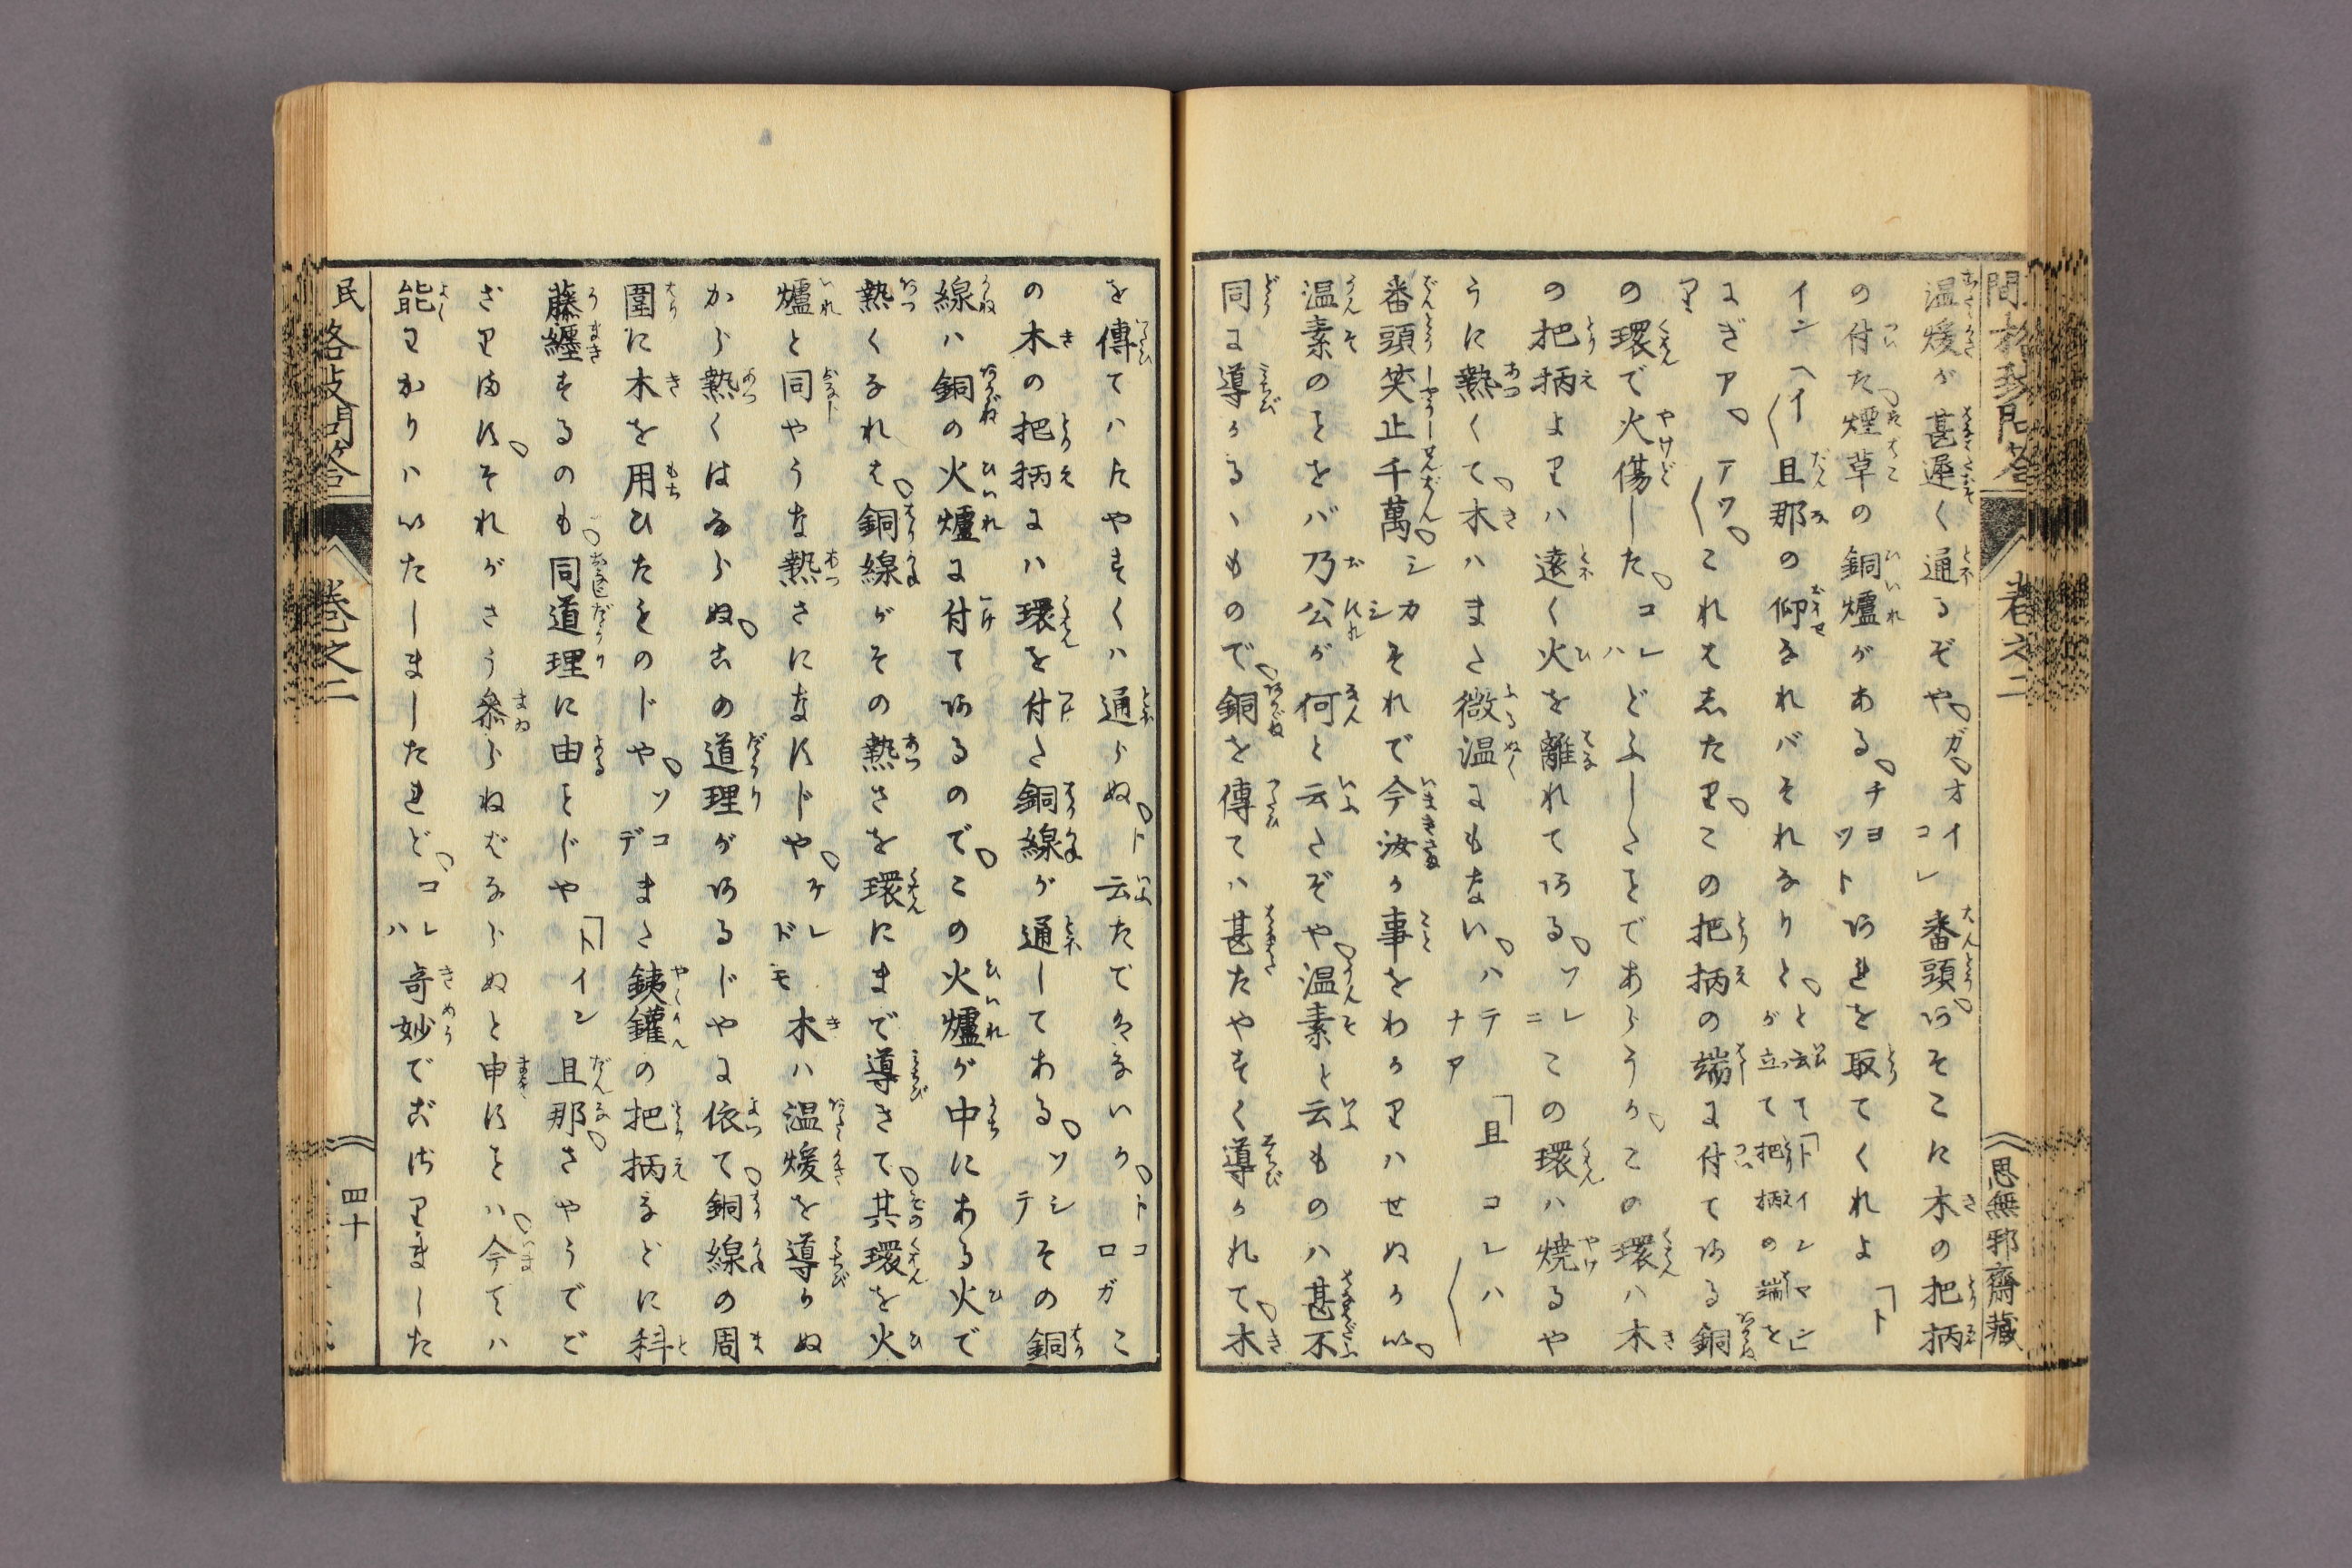 温煖が甚遅く通るぞや。ガ。オイコレ番頭。あそこに木の把柄
の付た。煙草の銅爐がある。チヨツトあれを取てくれよ「ト
イシヘイ〱旦那の仰なればそれなりと。と云て「トイシマシ が立て把柄の端を
にぎり ア。アツ〱。これはしたり。この把柄の端に付てある銅
の環で火傷した。コレハどふしたことであらうか。この環ハ木
の把柄よりハ遠く火を離れてある。ソレニこの環ハ焼るや
うに熱くて。木ハまた微温にもない。ハテナア「旦コレハ〱
番頭笑止千萬。シカシそれで今汝が事をわかりハせぬかい。
温素のことをバ乃公が何と云たぞや。温素と云ものハ甚不
同に導かるゝもので。銅を傳てハ甚たやすく導かれて。木
を傳てハたやすくハ通らぬ。ト云たでハないか。トコロガこ
の木の把柄にハ環を付た銅線が通してある。ソシテその銅
線ハ銅の火爐に付てあるので。この火爐が中にある火で
熱くなれば。銅線がその熱さを環にまで導きて。其環を火
爐と同やうな熱さになすじや。ケレドモ木ハ温煖を導かぬ
から熱くはならぬ。この道理があるじやに依て。銅線の周
圍に木を用ひたものじや。ソコデまた銕鑵の把柄などに科
藤纏するのも。同道理に由ことじや「トイシ旦那。さやうでご
ざります。それがさう叅らねばならぬと申すことハ。今でハ
能わかりハいたしましたれど。コレハ奇妙でござりました
卷之二
思無邪齋藏
民格致問答
卷之二
四十